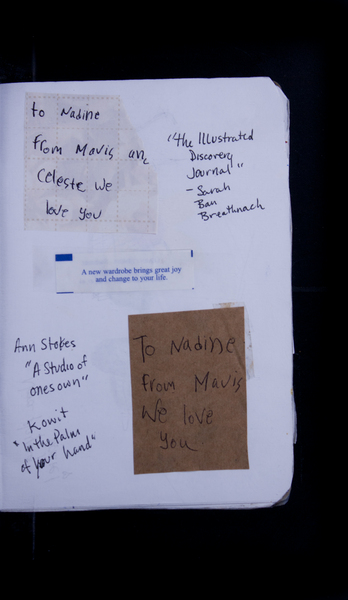 to Nadine
from Mavis and
Celeste We
love you
"The Illustrated
Discovery
Journal"
- Sarah
Ban
Breathnach
A new wardrobe brings great joy
and change to your life.
Ann Stokes
"A Studio of
ones own"
Kowit
"In the Palm
of your hand"
To Nadine
from Mavis
We love
you